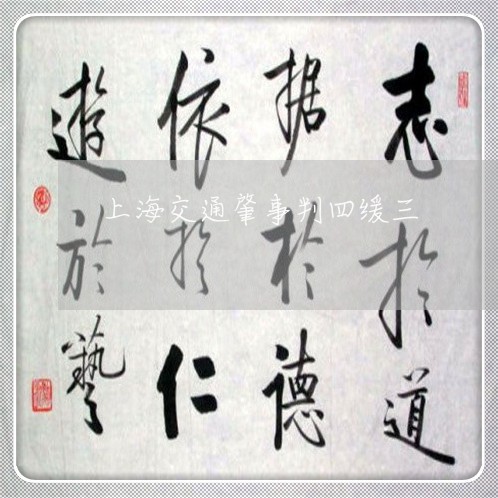 志於道
据於德
依於仁
遊於藝
上海交通肇事判四缓三